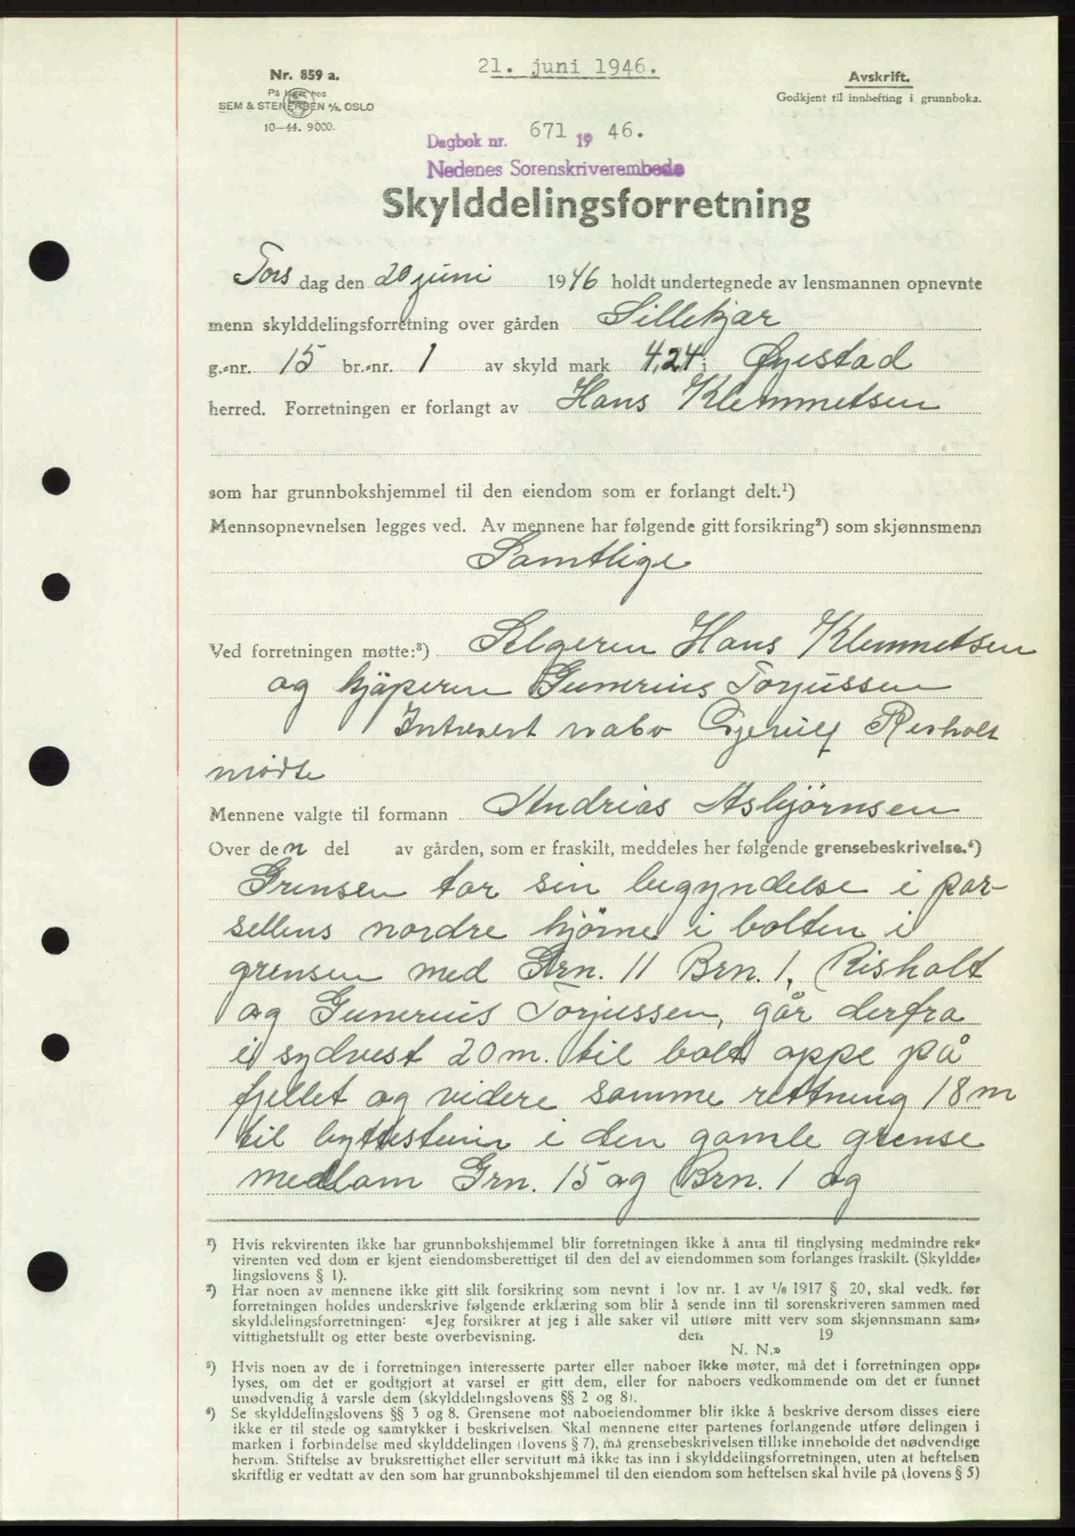 21. juni 1946.
Nr. 859 a.
På lager hos
SEM & STENERSEN A/S, OSLO
10-44. 9000.
Avskrift.
Godkjent til innhefting i grunnboka.
Dagbok nr. 671 19 46.
Nedenes Sorenskriverembede
Skylddelingsforretning
Tors dag den 20 juni 1946 holdt undertegnede av lensmannen opnevnte
menn skylddelingsforretning over gården Sillekjær
g.-nr. 15 br.-nr. 1 av skyld mark 4,24 i Øyestad
herred. Forretningen er forlangt av Hans Klemmetsen
som har grunnbokshjemmel til den eiendom som er forlangt delt.¹)
Mennsopnevnelsen legges ved. Av mennene har følgende gitt forsikring²) som skjønnsmenn
Samtlige
Ved forretningen møtte:³) Selgeren Hans Klemmetsen
og kjøperen Gunerius Torjussen
Intresert nabo Risholt
mødte
Mennene valgte til formann Andrias Asbjørnsen
Over den del av gården, som er fraskilt, meddeles her følgende grensebeskrivelse.⁴)
Grensen tar sin begyndelse i par-
sellens nordre hjørne i bolten i
grensen med Grn. 11 Brn. 1, Risholt
og Gunerius Torjussen, går derfra
i sydvest 20 m. til bolt oppe på
fjellet og videre samme rettning 18 m
til byttestein i den gamle grense
mellom Grn. 15 og Brn. 1 og
¹) Hvis rekvirenten ikke har grunnbokshjemmel blir forretningen ikke å anta til tinglysing medmindre rek-
virenten ved dom er kjent eiendomsberettiget til den del av eiendommen som forlanges fraskilt. (Skyldde-
lingslovens § 1).
²) Har noen av mennene ikke gitt slik forsikring som nevnt i lov nr. 1 av 1/6 1917 § 20, skal vedk. før
forretningen holdes underskrive følgende erklæring som blir å sende inn til sorenskriveren sammen med
skylddelingsforretningen: «Jeg forsikrer at jeg i alle saker vil utføre mitt verv som skjønnsmann sam-
vittighetsfullt og etter beste overbevisning. den 19
N. N.»
³) Hvis noen av de i forretningen interesserte parter eller naboer ikke møter, må det i forretningen opp-
lyses, om det er godtgjort at varsel er gitt dem, eller for naboers vedkommende om det er funnet
unødvendig å varsle dem (skylddelingslovens §§ 2 og 8).
⁴) Se skylddelingslovens §§ 3 og 8. Grensene mot naboeiendommer blir ikke å beskrive dersom disses eiere
ikke er til stede og samtykker i beskrivelsen. Skal mennene etter partenes forlangende utføre delingen i
marken i forbindelse med skylddelingen (lovens § 7), må grensebeskrivelsen tillike inneholde det nødvendige
herom. Stiftelse av bruksrettighet eller servitutt må ikke tas inn i skylddelingsforretningen, uten at heftelsen
skriftlig er vedtatt av den som har grunnbokshjemmel til den eiendom som heftelsen skal hvile på (lovens § 5)